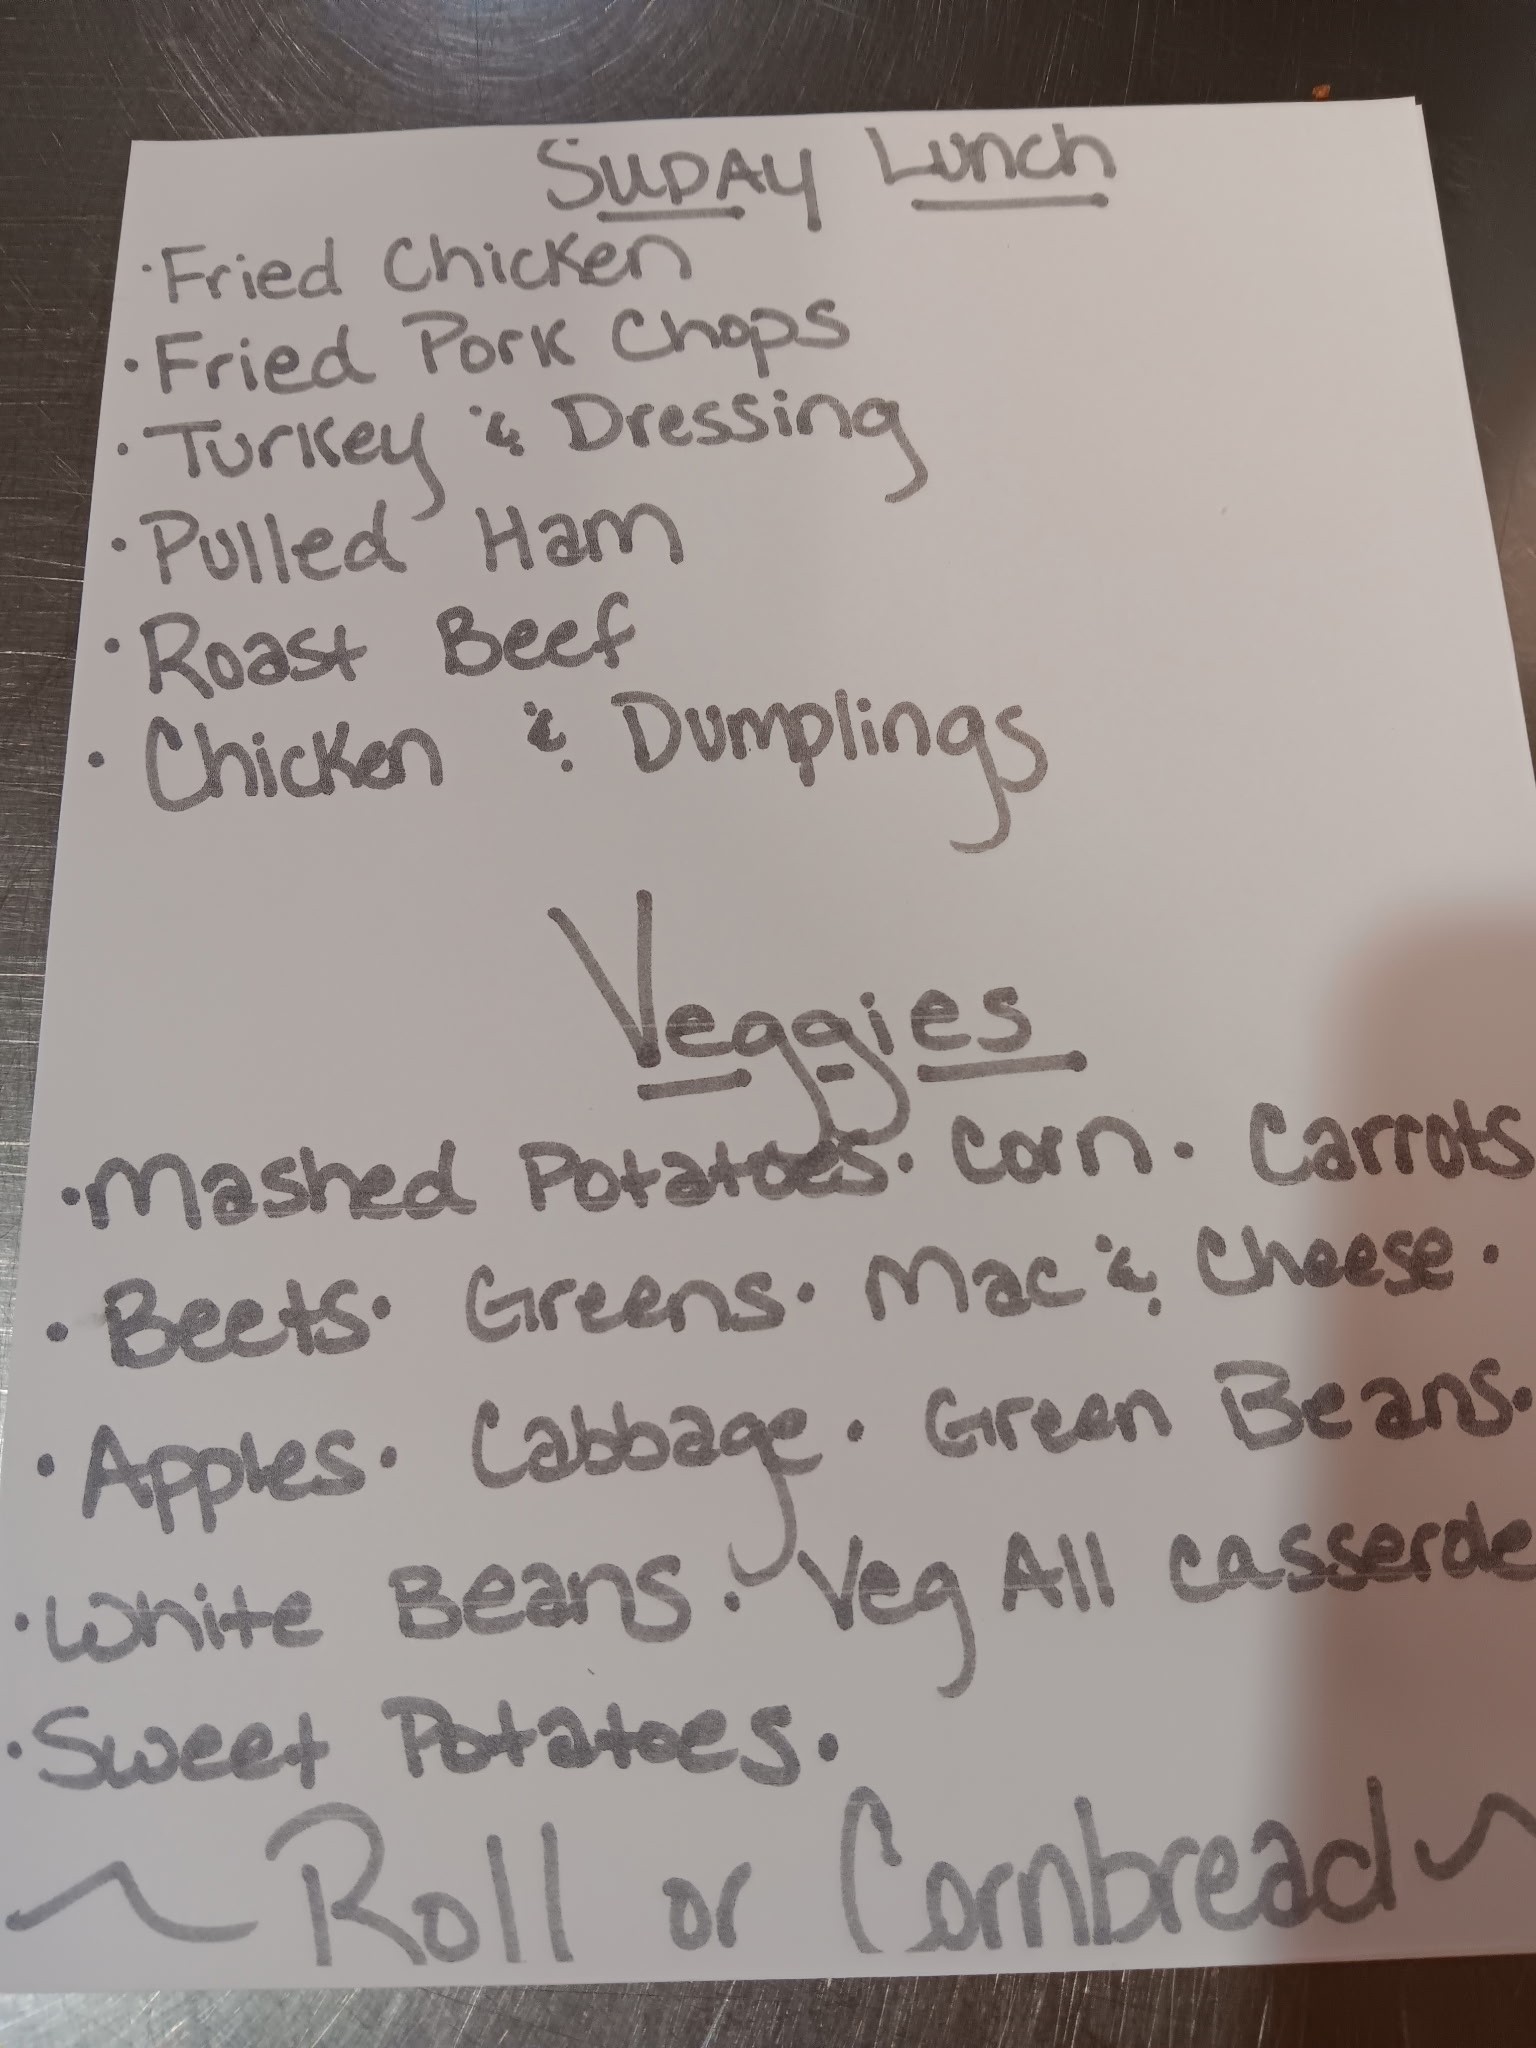 SUDAY Lunch
· Fried Chicken
· Fried Pork Chops
· Turkey & Dressing
· Pulled Ham
· Roast Beef
· Chicken & Dumplings
Veggies
· Mashed Potatoes · Corn · Carrots
· Beets · Greens · Mac & Cheese ·
· Apples · Cabbage · Green Beans ·
· White Beans · Veg All casserole
· Sweet Potatoes ·
~ Roll or Cornbread ~